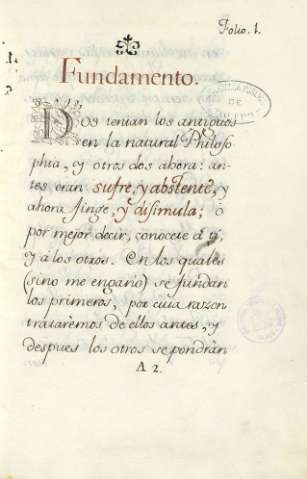 Folio. 1.
Fundamento.
Dos tenian los antiguos
en la natural Philoso-
phia, y otros dos ahora: an-
tes eran sufre, y abstente, y
ahora finge, y disimula; ò
por mejor decir, conocete à ti,
y à los otros. En los quales
(sino me engaño) se fundan
los primeros, por cuia razon
trataremos de ellos antes, y
despues los otros se pondràn
A 2.